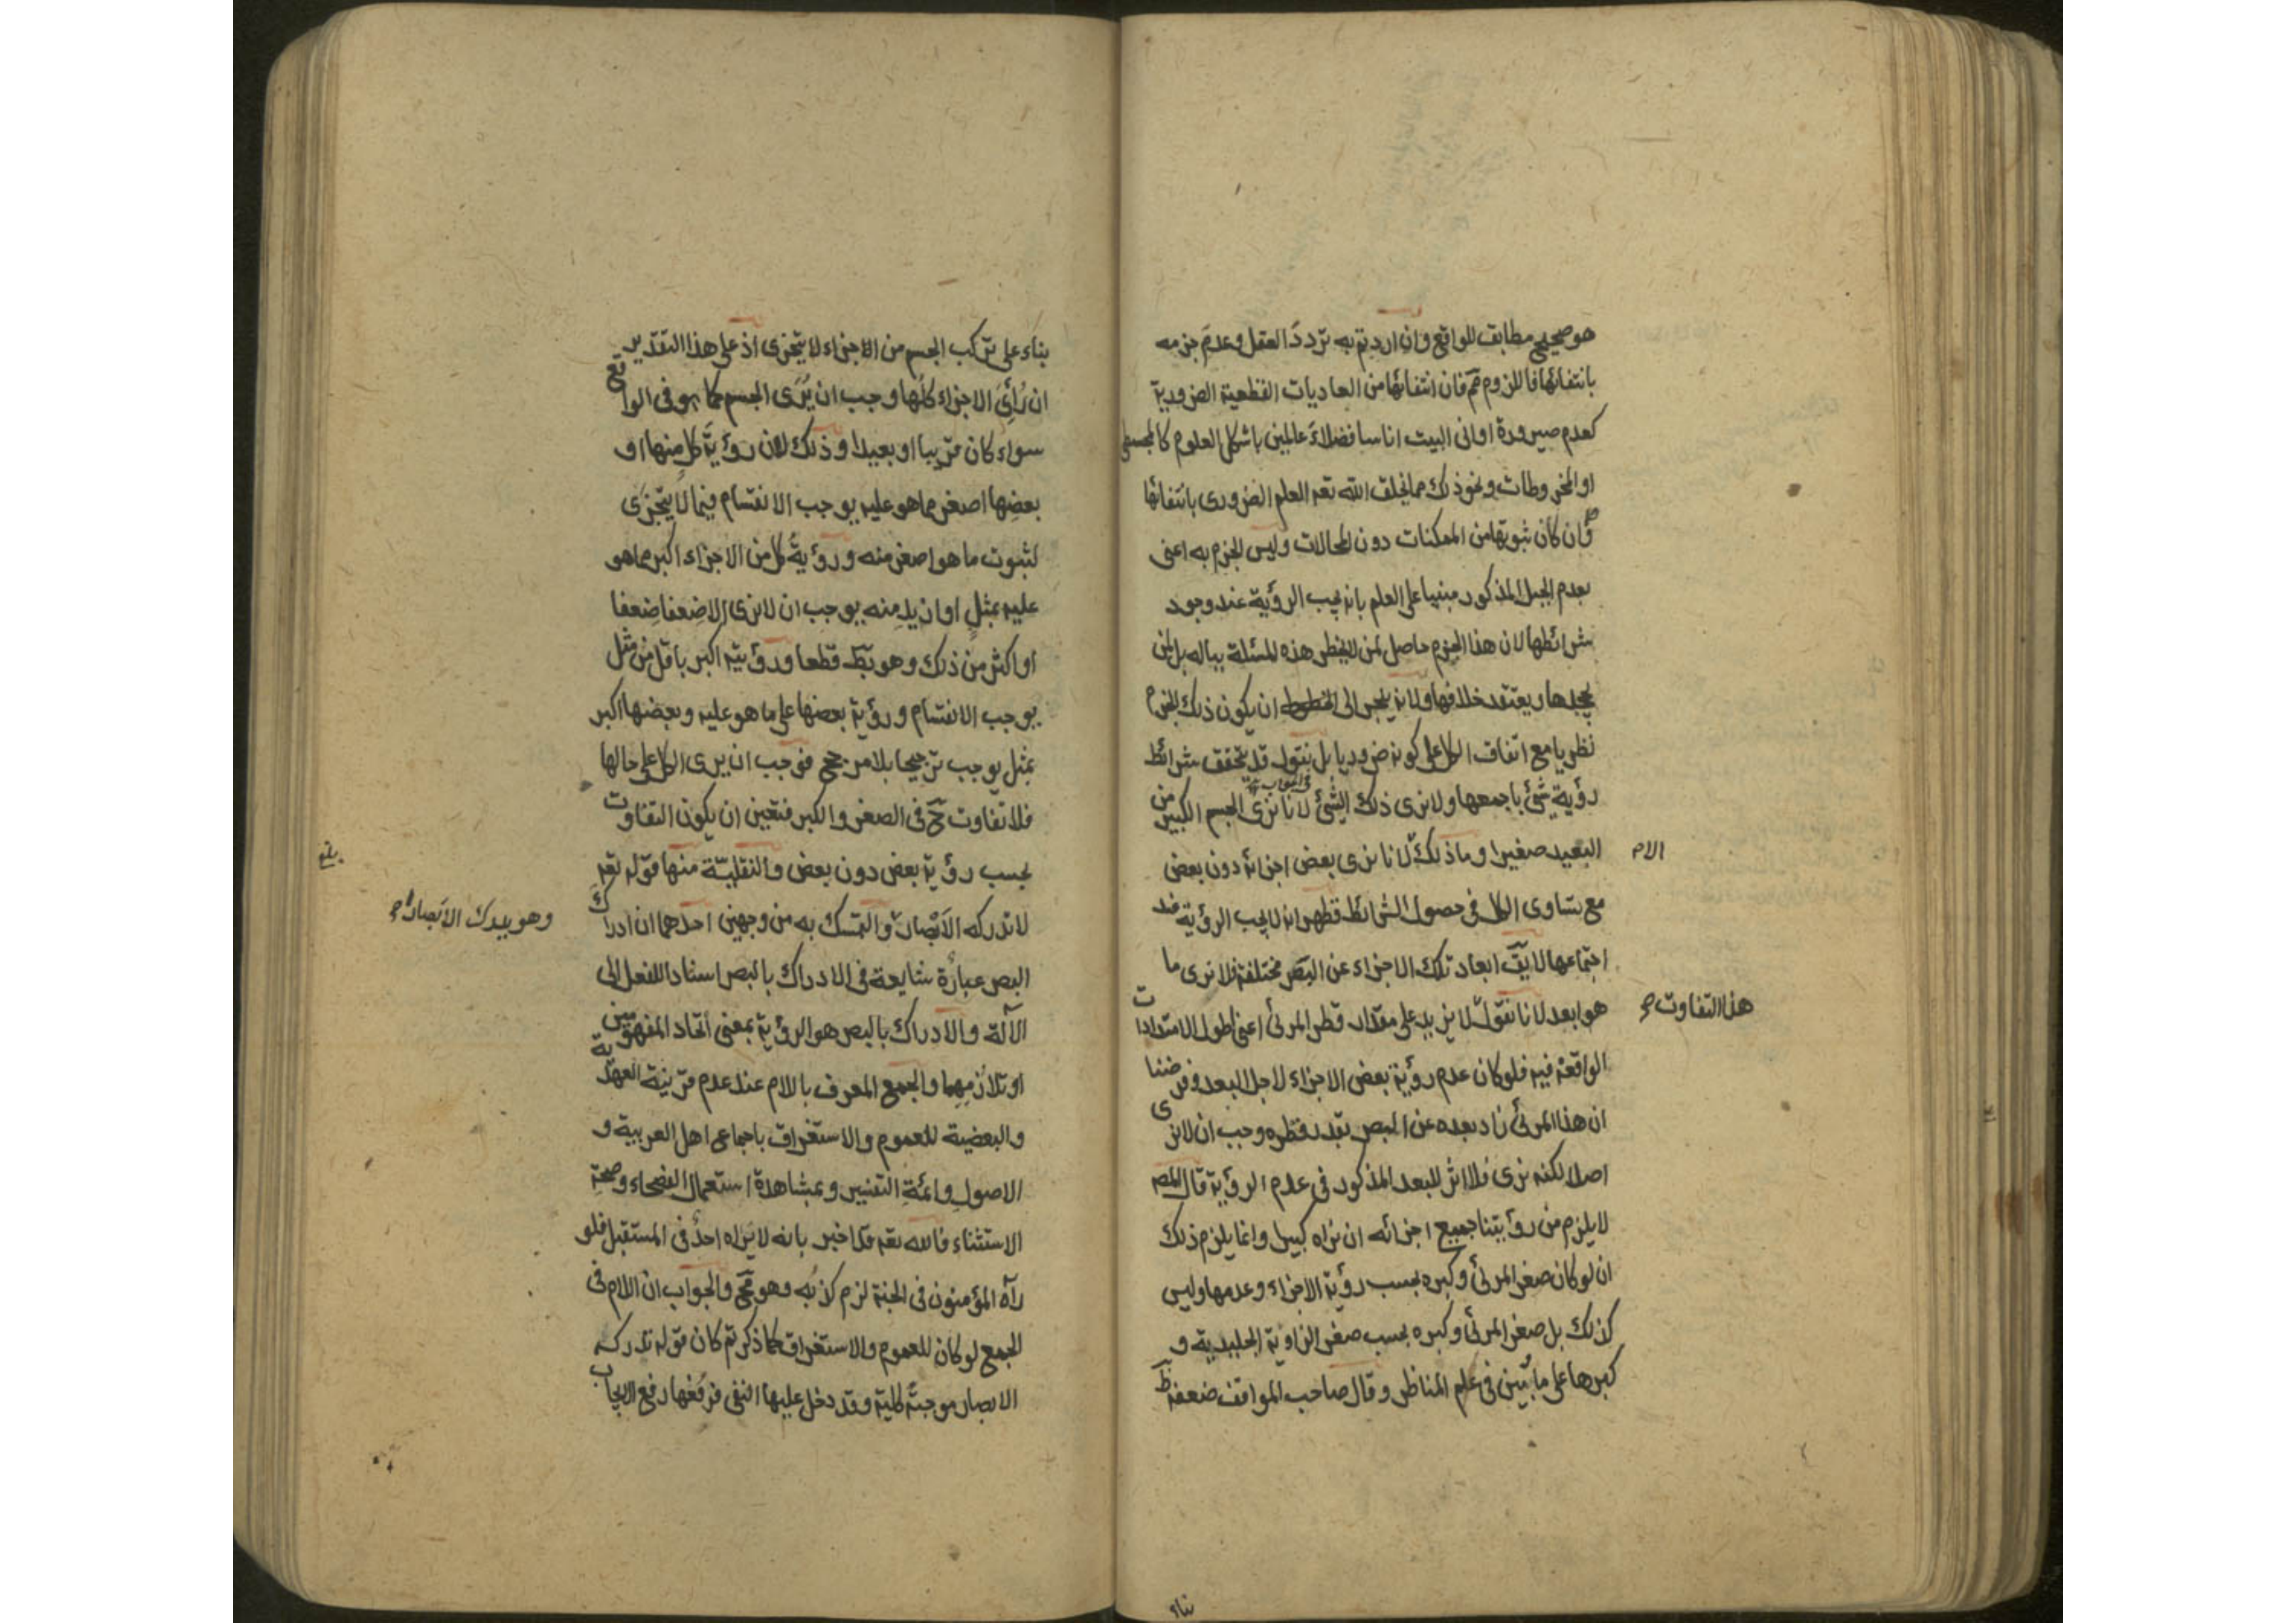 هو صحيح مطابق للواقع وان اردتم به تردد العقل وعدم جزمه
بانتفائها فاللزوم مم فان انتفائها من العاديات القطعية الضرورية
كعدم صيرورة اوانى البيت اناسا فضلاء عالمين باشكل العلوم كالمجسطى
او المخروطات ونحو ذلك مما يخلق الله تعه العلم الضرورى بانتفائها
وان كان ثبوتها من الممكنات دون المحالات وليس الجزم به اعنى
بعدم الجبل المذكور مبنيا على العلم بانه يجب الرؤية عند وجود
شرائطها لان هذا الجزم حاصل لمن لا يخطر هذه المسئلة بباله بل لمن
يجهلها ويعتقد خلافها ولانه ينجر الى ان يكون ذلك الجزم
نظريا مع اتفاق الكل على كونه ضروريا بل نقول قد يتحقق شرائط
رؤية شئ باجمعها ولا نرى ذلك الشئ لانا نرى الجسم الكبير من
البعيد صغيرا وما ذلك الا لانا نرى بعض اجزائه دون بعض
الام
مع تساوى الكل فى حصول الشرائط فظهر انه لا يجب الرؤية عند
اجتماعها لا يق ابعاد تلك الاجزاء عن البصر مختلفة فلا نرى ما
هو ابعد لانا نقول لا يزيد على مقدار قطر المرئى اعنى اطول الامتدادات
هذا التفاوت صح
الواقعة فيه فلو كان عدم رؤية بعض الاجزاء لاجل البعد وفرضنا
ان هذا المرئى زاد بعده عن البصر بقدر قطره وجب ان لا نرى
اصلا لكنه نرى فلا اثر للبعد المذكور فى عدم الرؤية قال المص
لا يلزم من رؤيتنا جميع اجزائه ان نراه كبيرا وانما يلزم ذلك
ان لو كان صغر المرئى وكبره بحسب رؤية الاجزاء وعدمها وليس
كذلك بل صغر المرئى وكبره بحسب صغر الزاوية الجليدية و
كبرها على ما بين فى علم المناظر وقال صاحب المواقف ضعفه ظ
بناء
بناء على تركب الجسم من الاجزاء لا يتجزى اذ على هذا التقدير
ان رأى الاجزاء كلها وجب ان يرى الجسم كما هو فى الواقع
سواء كان قريبا او بعيدا وذلك لان رؤية كل منها او
بعضها اصغر مما هو عليه يوجب الانقسام فيما لا يتجزى
لثبوت ما هو اصغر منه ورؤية كل من الاجزاء اكبر مما هو
عليه بمثل او ازيد منه يوجب ان لا نرى الا ضعفا ضعفا
او اكثر من ذلك وهو بط قطعا ورؤيته اكبر باقل من مثل
يوجب الانقسام ورؤية بعضها على ما هو عليه وبعضها اكبر
بمثل يوجب ترجيحا بلا مرجح فوجب ان يرى الكل على حالها
فلا تفاوت ح فى الصغر والكبر فتعين ان يكون التفاوت
بحسب رؤية بعض دون بعض والنقلية منها قوله تعه
لا تدركه الابصار والتمسك به من وجهين احدهما ان ادراك
وهو يدرك الابصار صح
البصر عبارة شايعة فى الادراك بالبصر اسنادا للفعل الى
الآلة والادراك بالبصر هو الرؤية بمعنى اتحاد المفهومين
او تلازمهما والجمع المعرف باللام عند عدم قرينة العهدية
والبعضية للعموم والاستغراق باجماع اهل العربية و
الاصول وائمة التفسير وبمشاهدة استعمال الفصحاء وصحة
الاستثناء فالله تعه قد اخبر بانه لا يراه احد فى المستقبل فلو
رآه المؤمنون فى الجنة لزم كذبه وهو مح والجواب ان اللام فى
الجمع لو كان للعموم والاستغراق كما ذكرتم كان قوله تدركه
الابصار موجبة كلية وقد دخل عليها النفى فرفعها رفع الايجاب